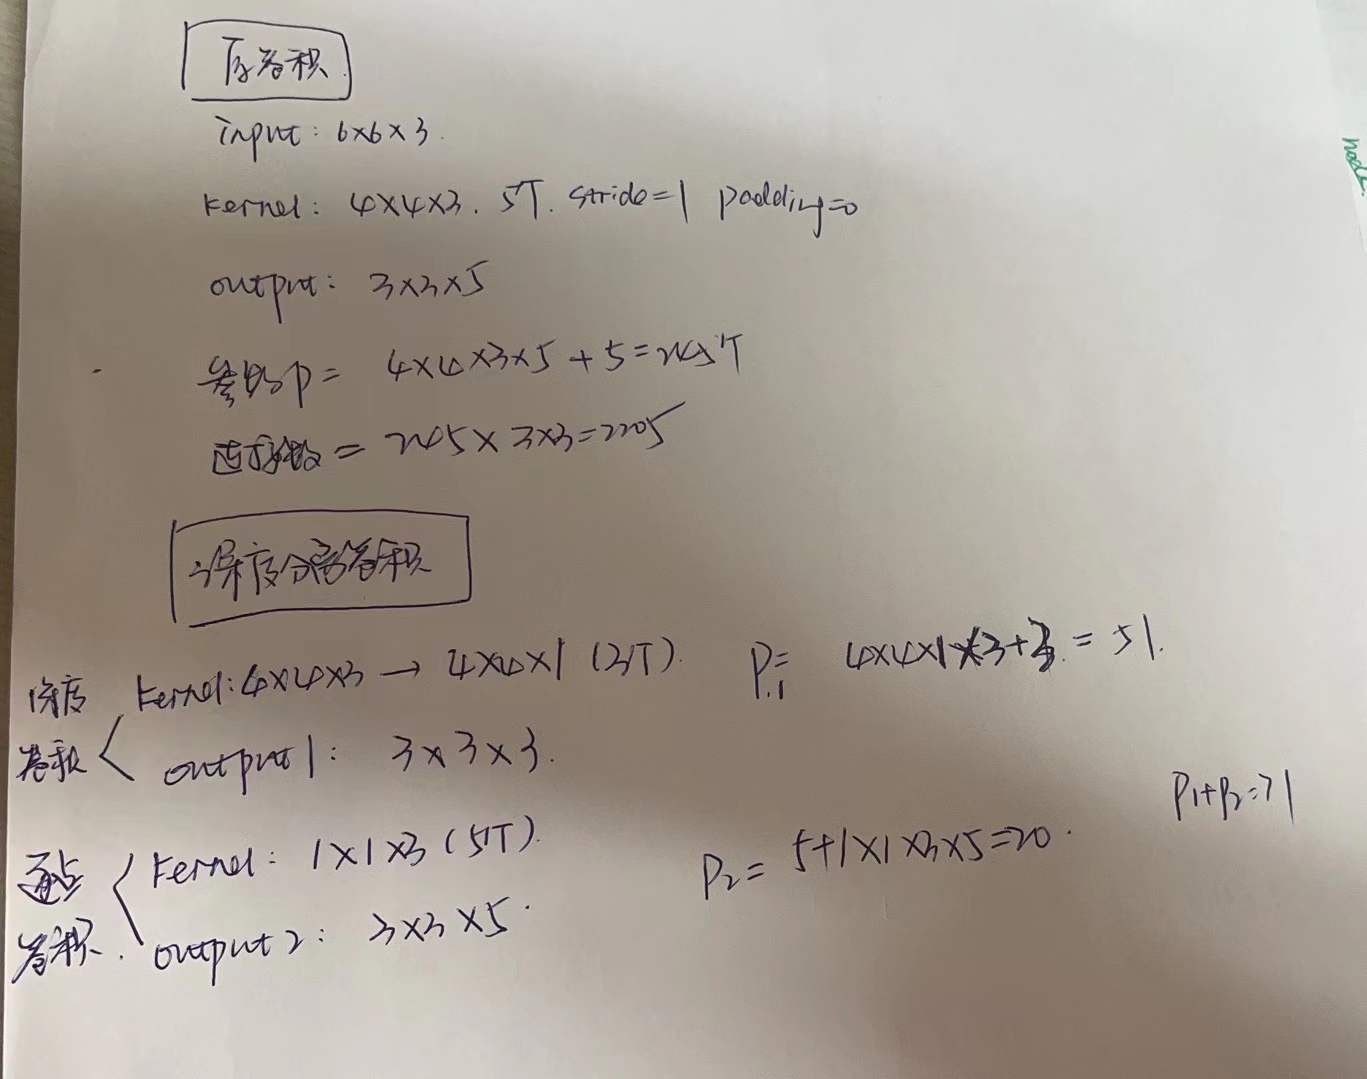 原卷积
input: 6×6×3.
kernel: 4×4×3. 5个. stride=1 padding=0
output: 3×3×5
参数P= 4×4×3×5+5=245个
连接数= 245×3×3=2205
深度分离卷积
深度卷积
kernel: 4×4×3→4×4×1 (3个). P1= 4×4×1×3+3=51.
output1: 3×3×3.
P1+P2=71
逐点卷积.
kernel: 1×1×3 (5个). P2= 5+1×1×3×5=20.
output2: 3×3×5.